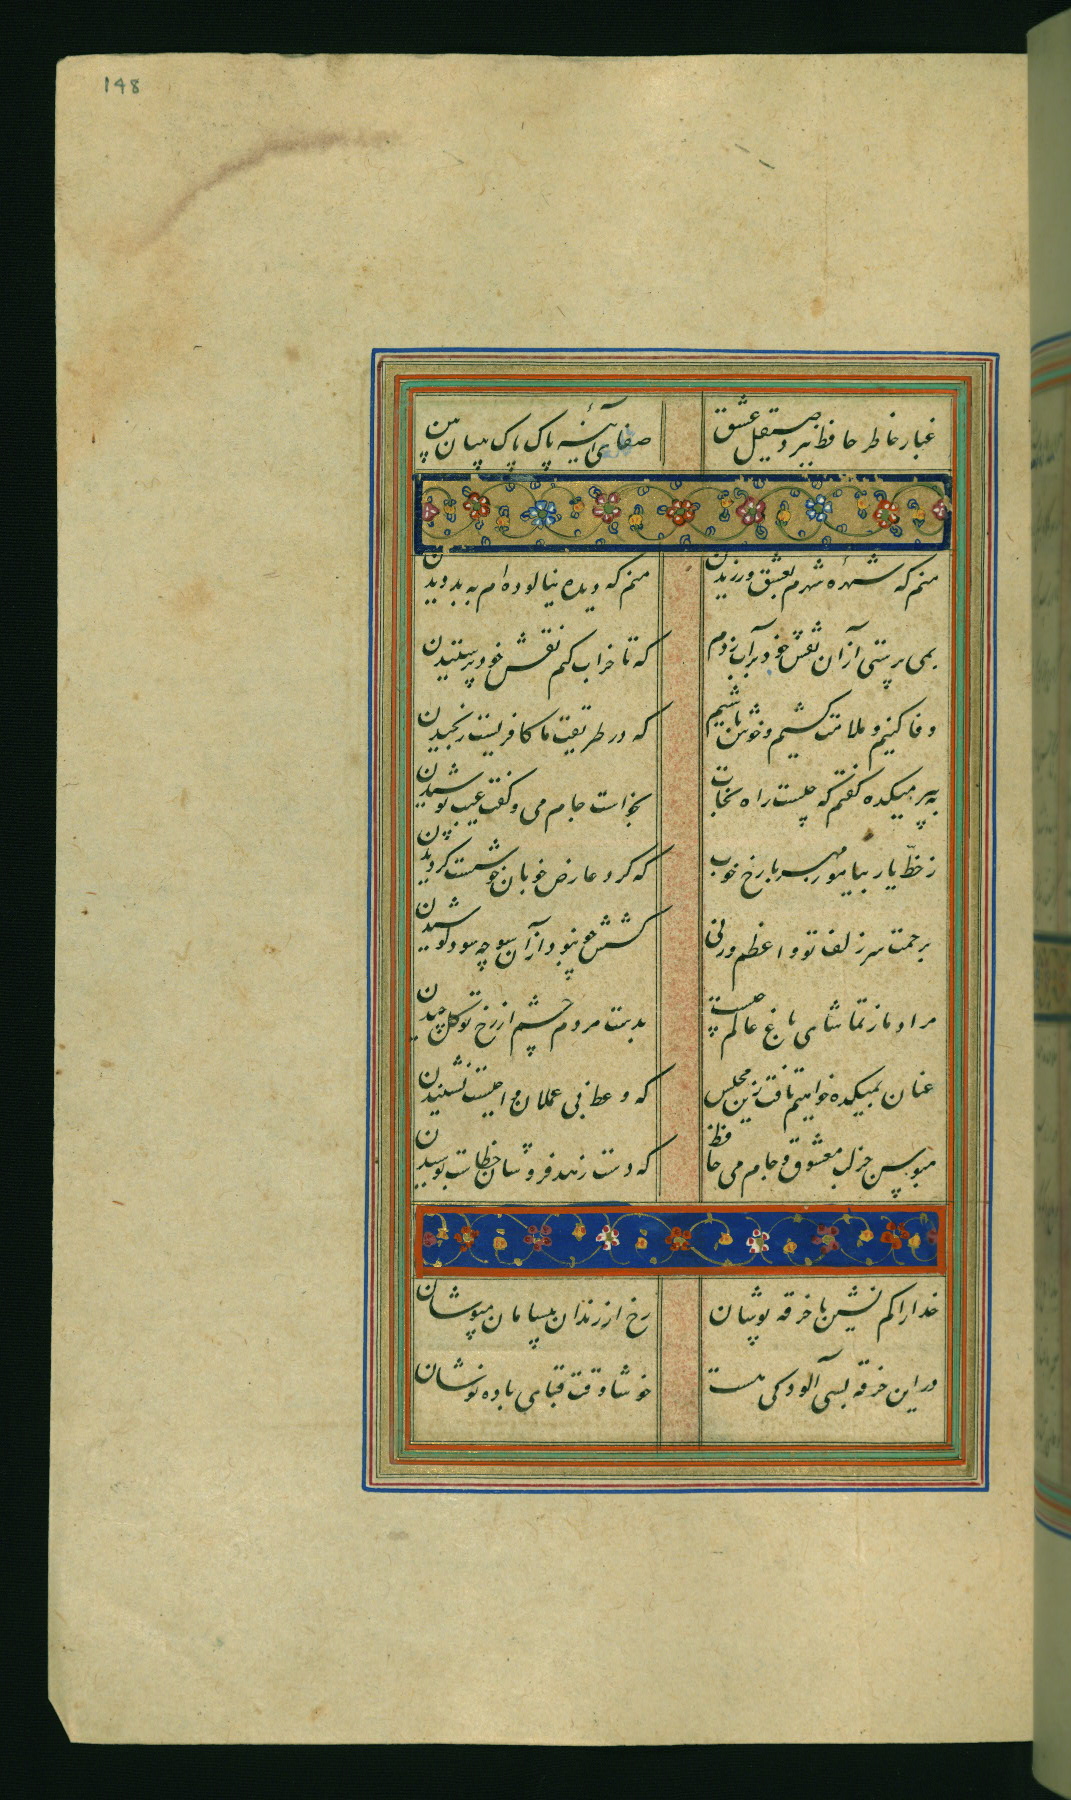 148
غبار خاطر حافظ ببرد صیقل عشق صفای آینهٔ پاک پاک بینان بین
منم که شهرهٔ شهرم بعشق ورزیدن منم که دیده نیالوده‌ام به بد دیدن
بمی پرستی از آن نقش خود بر آب زدم که تا خراب کنم نقش خود پرستیدن
وفا کنیم و ملامت کشیم و خوش باشیم که در طریقت ما کافریست رنجیدن
به پیر میکده گفتم که چیست راه نجات بخواست جام می و گفت عیب پوشیدن
ز خطّ یار بیاموز مهر با رخ خوب که گرد عارض خوبان خوشست گردیدن
برحمت سر زلف تو واعظم ورنی کشش چو نبود از آن سو چه سود کوشیدن
مراد ما ز تماشای باغ عالم چیست بدست مردم چشم از رخ تو گل چیدن
عنان بمیکده خواهیم تافت زین مجلس که وعظ بی عملان واجبست نشنیدن
مبوس جز لب معشوق و جام می حافظ که دست زهد فروشان خطاست بوسیدن
خدا را کم نشین با خرقه پوشان رخ از رندان بی‌سامان مپوشان
در این خرقه بسی آلودگی هست خوشا وقت قبای باده نوشان